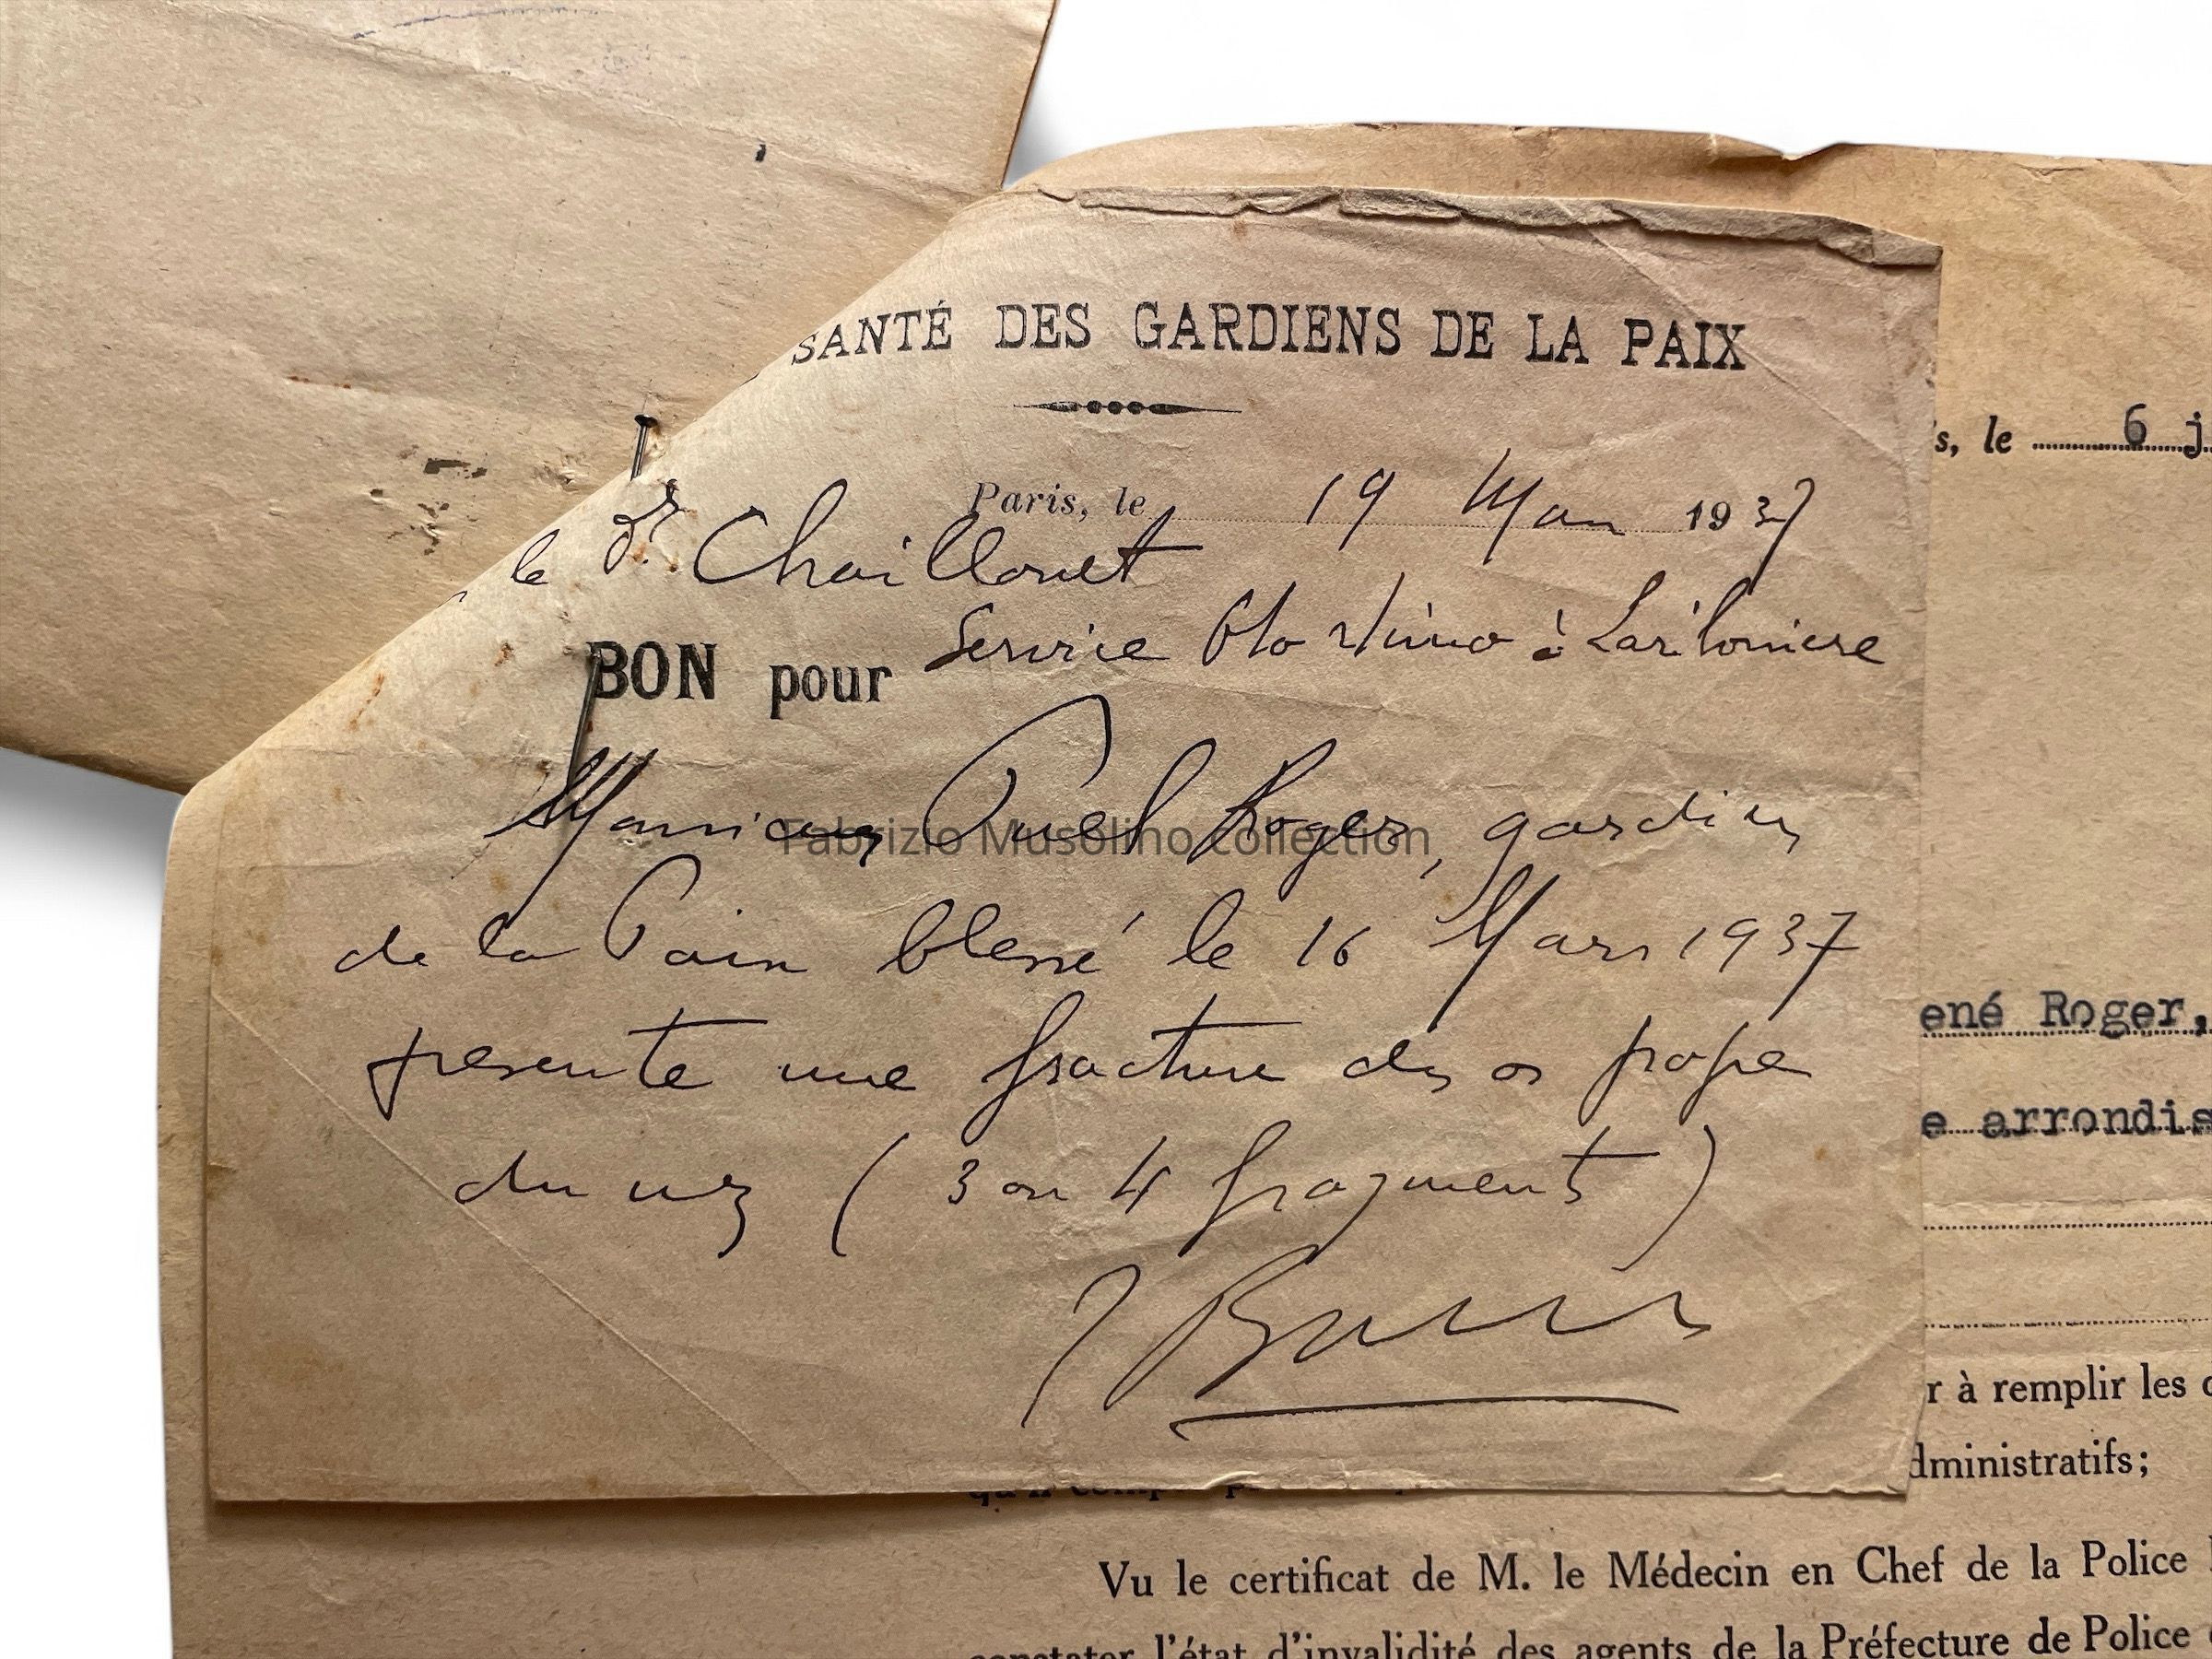 SANTÉ DES GARDIENS DE LA PAIX
Paris, le 19 Mars 1937
le Dr Chaillouet
BON pour Service Oto Rhino à Lariboisiere
Monsieur Puel Roger, gardien
de la Paix blessé le 16 Mars 1937
presente une fracture des os propres
du nez (3 ou 4 fragments)
s, le 6 j
ené Roger,
e arrondis
r à remplir les
dministratifs;
Vu le certificat de M. le Médecin en Chef de la Police
constater l'état d'invalidité des agents de la Préfecture de Police
Fabrizio Musolino collection